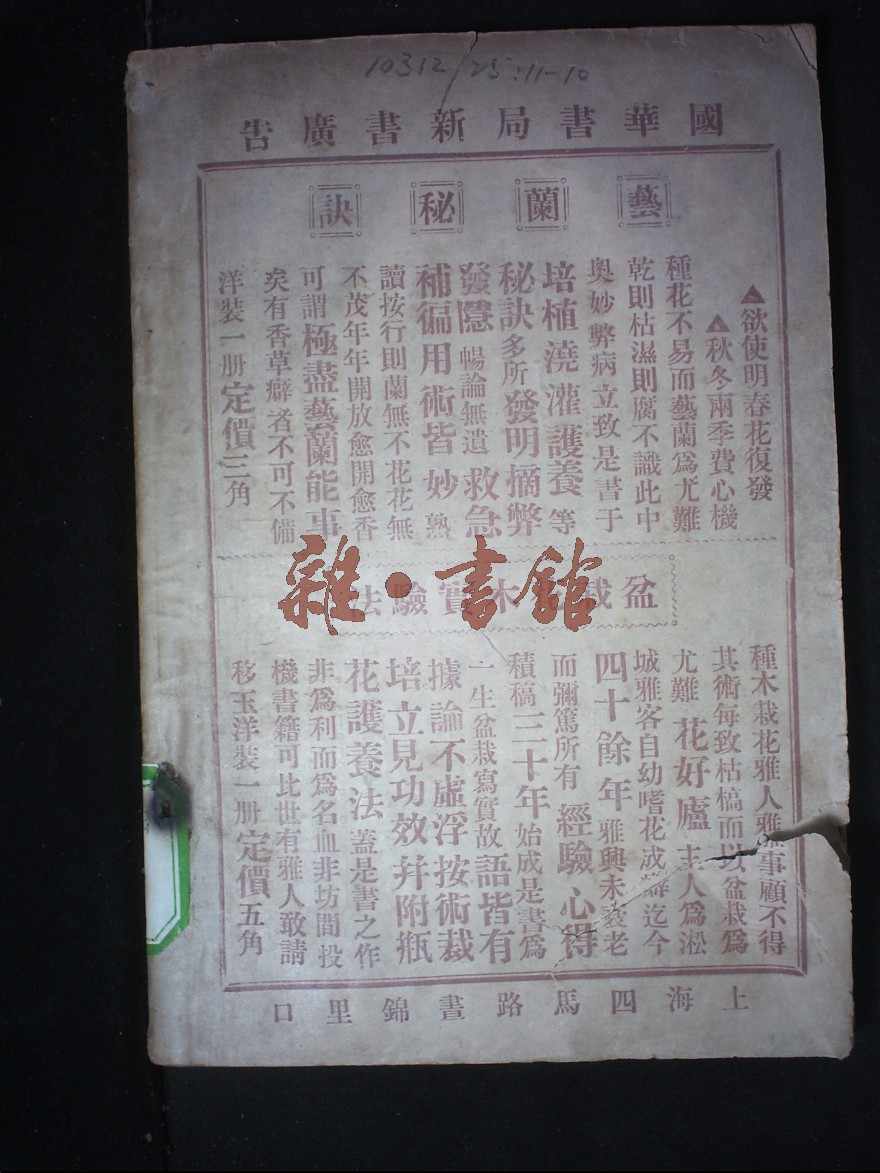 10312/25:11-10
國華書局新書廣告
藝蘭秘訣
▲欲使明春花復發
▲秋冬兩季費心機
種花不易而藝蘭爲尤難
乾則枯濕則腐不識此中
奥妙弊病立致是書于
培植澆灌護養等
秘訣多所發明摘弊
發隱暢論無遺救急
補徧用術皆妙熟
讀按行則蘭無不花花無
不茂年年開放愈開愈香
可謂極盡藝蘭能事
矣有香草癖者不可不備
洋裝一册定價三角
盆栽 木實驗法
雜·書館
種木栽花雅人雅事顧不得
其術每致枯槁而以盆栽爲
尤難花好廬主人爲淞
城雅客自幼嗜花成癖迄今
四十餘年雅興未衰老
而彌篤所有經驗心得
積稿三十年始成是書爲
一生盆栽寫實故語皆有
據論不虛浮按術栽
培立見功效幷附瓶
花護養法蓋是書之作
非爲利而爲名血非坊間投
機書籍可比世有雅人敢請
移玉洋裝一册定價五角
上海四馬路晝錦里口